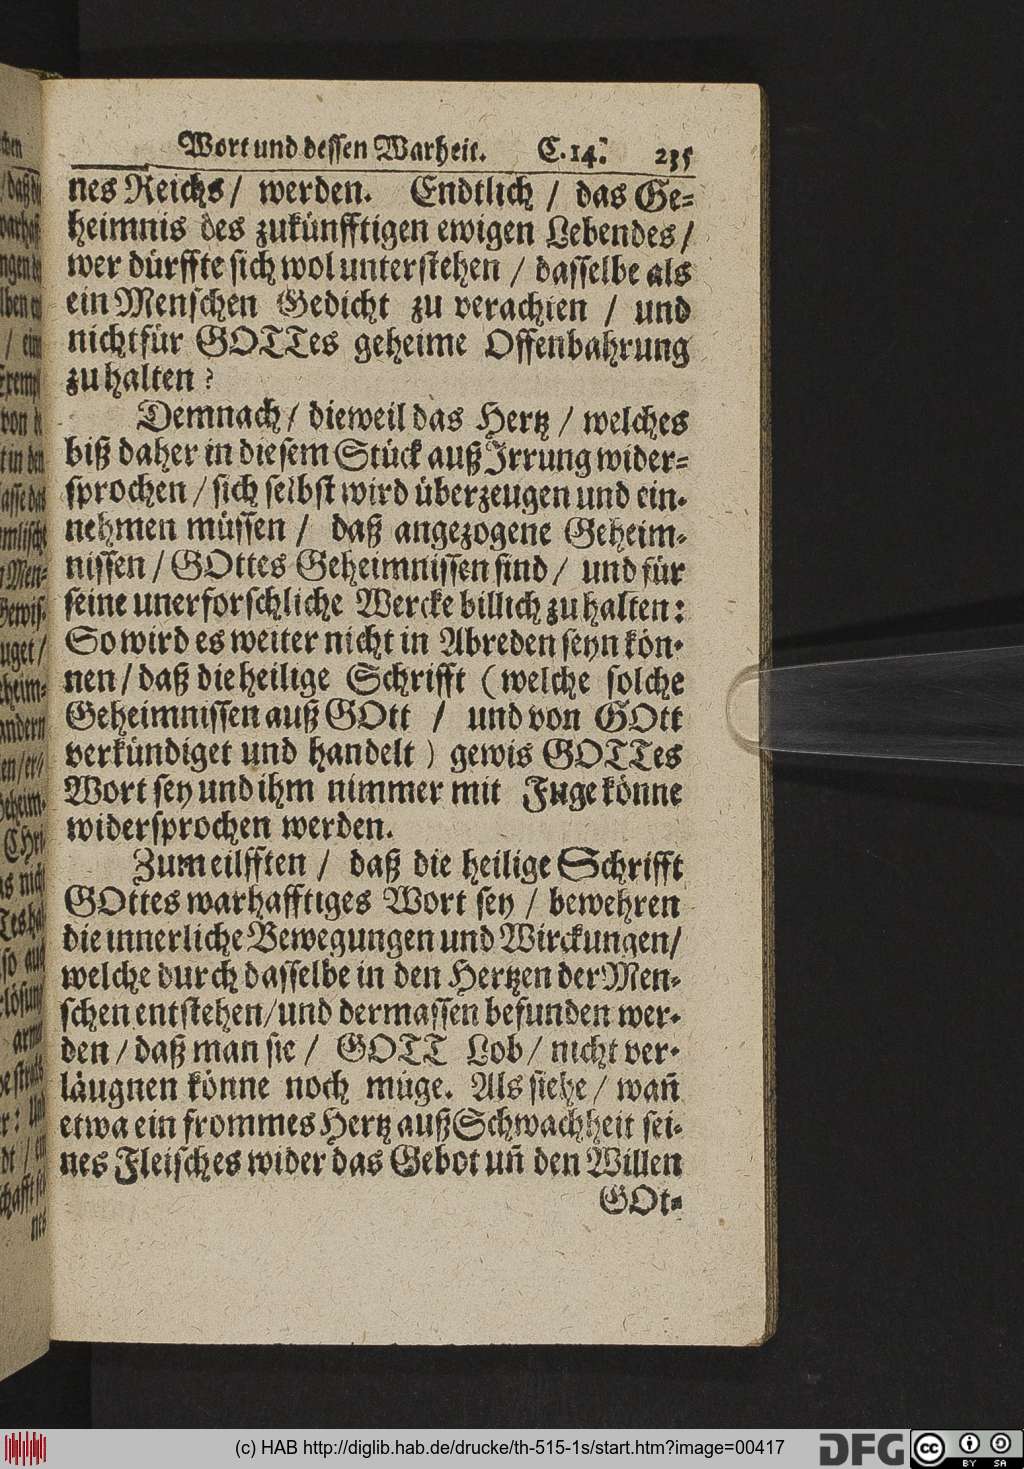 Wort und dessen Warheit. C. 14. 235
nes Reichs / werden. Endtlich / das Ge-
heimnis des zukünfftigen ewigen Lebendes /
wer dürffte sich wol unterstehen / dasselbe als
ein Menschen Gedicht zu verachten / und
nicht für GOTTes geheime Offenbahrung
zu halten?
Demnach / dieweil das Hertz / welches
biß daher in diesem Stück auß Irrung wider-
sprochen / sich selbst wird überzeugen und ein-
nehmen müssen / daß angezogene Geheim-
nissen / GOttes Geheimnissen sind / und für
seine unerforschliche Wercke billich zu halten:
So wird es weiter nicht in Abreden seyn kön-
nen / daß die heilige Schrifft (welche solche
Geheimnissen auß GOtt / und von GOtt
verkündiget und handelt) gewis GOTTes
Wort sey und ihm nimmer mit Fuge könne
widersprochen werden.
Zum eilfften / daß die heilige Schrifft
GOttes warhafftiges Wort sey / bewehren
die innerliche Bewegungen und Wirckungen /
welche durch dasselbe in den Hertzen der Men-
schen entstehen / und dermassen befunden wer-
den / daß man sie / GOTT Lob / nicht ver-
läugnen könne noch müge. Als siehe / wañ
etwa ein frommes Hertz auß Schwachheit sei-
nes Fleisches wider das Gebot uñ den Willen
GOt-
(c) HAB http://diglib.hab.de/drucke/th-515-1s/start.htm?image=00417
DFG
cc BY SA